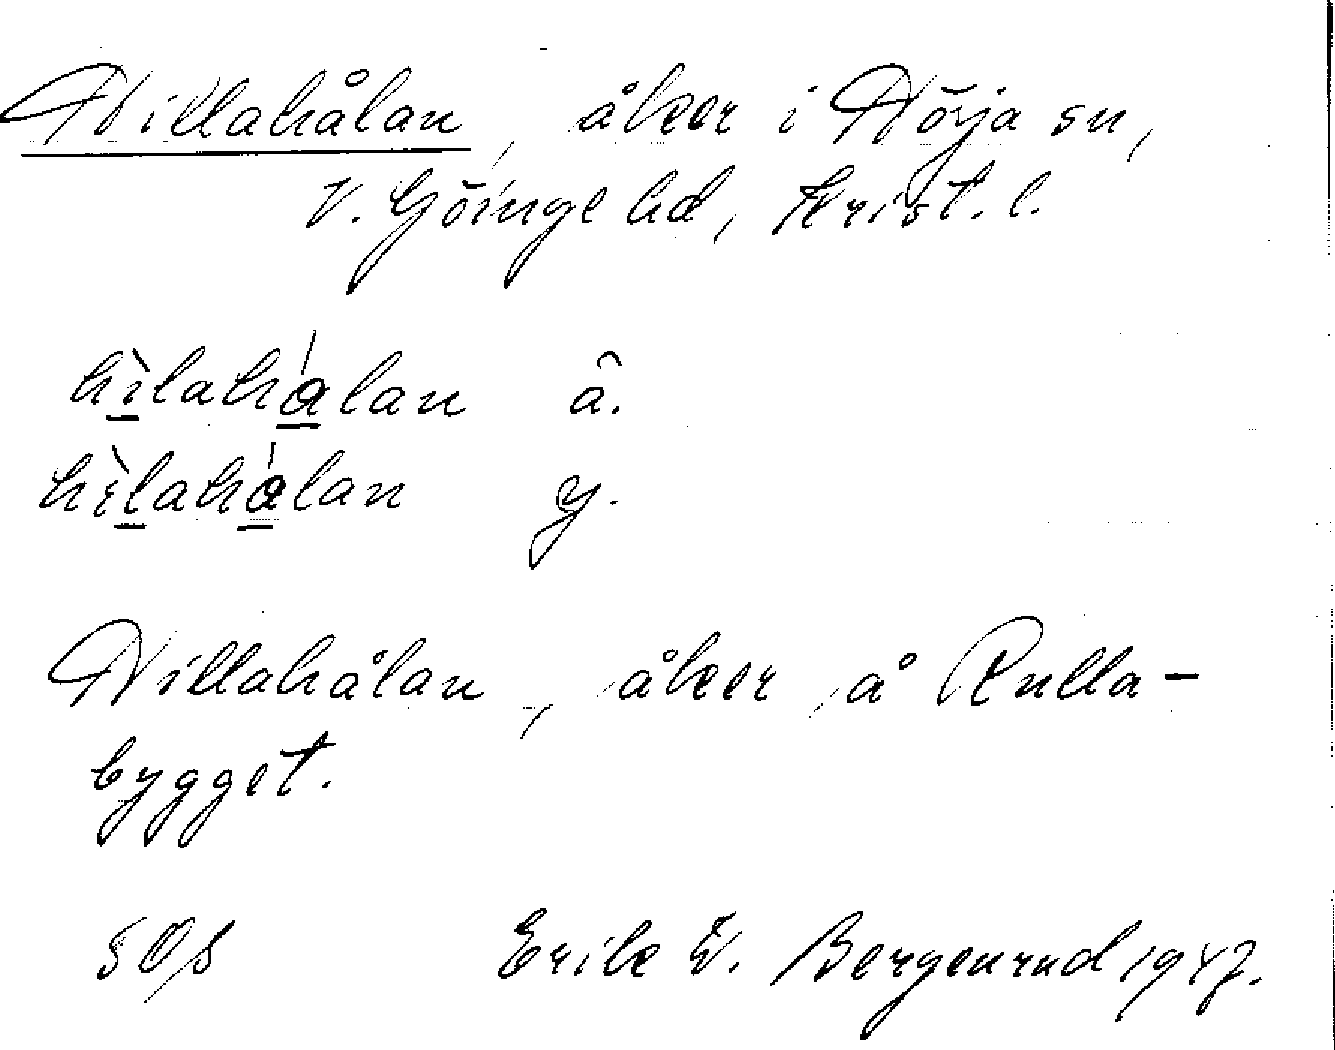 Hillahålan, åker i Nörja sn,
V. Göinge hd, Krist. l.
hìlahálan â.
hìlahálan y.
Hillahålan, åker å Rulla-
bygget.
Erik V. Bergenrud 1947.